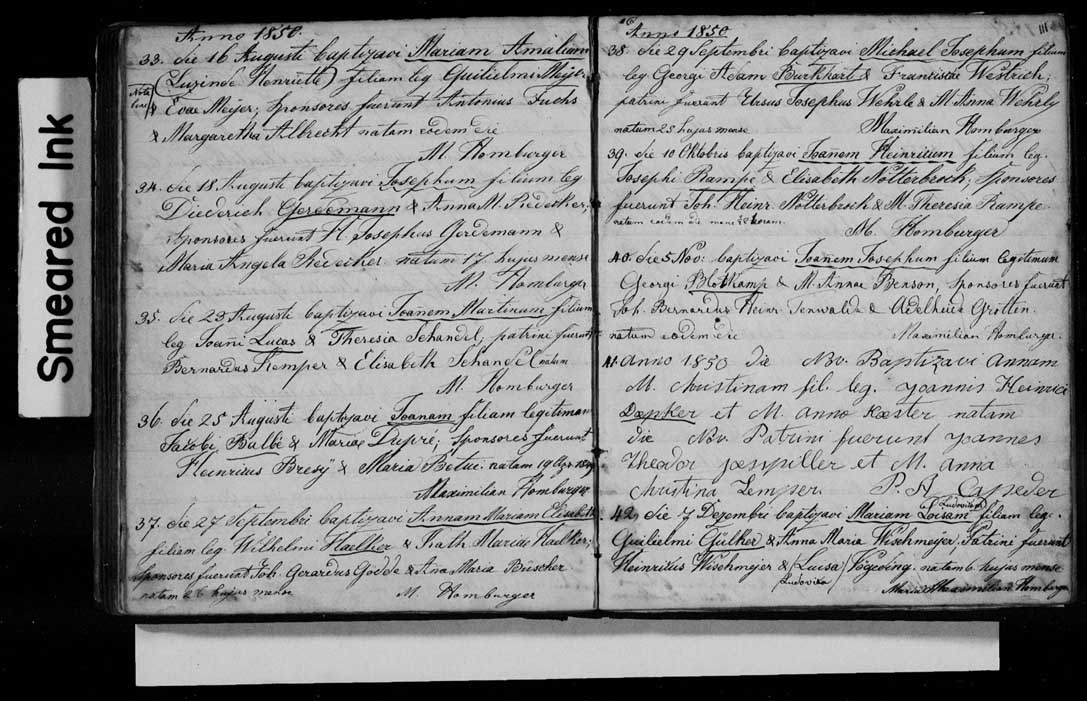 Smeared Ink
Anno 1850.
33. die 16 Augusti baptizavi Mariam Amaliam
(Luzinde Henriette) filiam leg Guilielmi Meijer
& Evae Meijer; sponsores fuerunt Antonius Fuchs
& Margaretha Albrecht natam eodem die
M. Homburger
34. die 18 Augusti baptizavi Josephum filium leg
Diederich Gerdemann & Anna M. Redecker;
Sponsores fuerunt H. Josephus Gerdemann &
Maria Angela Redecker natum 17 hujus mense
M. Homburger
35. die 23 Augusti baptizavi Joañem Martinum filium
leg Joañi Lucas & Theresia Schandel, patrini fuerunt
Bernardus Kemper & Elisabeth Schandel natum
M. Homburger
36. die 25 Augusti baptizavi Joanam filiam legitimam
Jacobi Balbe & Mariae Dupré; Sponsores fuerunt
Heinrius Bresy & Maria Betue. natam 19
Maximilian Homburger
37. die 27 Septembri baptizavi Annam Mariam Elisabeth
filiam leg Wilhelmi Haelker & Kath. Mariae Haelker;
Sponsores fuerunt Joh. Gerardus Godde & Ana Maria Brüscher
natam 26 hujus mense M. Homburger
Anno 1850
111
38. die 29 Septembri baptizavi Michael Josephum filium
leg Georgi Adam Burkhart & Franziscae Westrich;
patrini fuerunt Ursus Josephus Wehrle & M. Anna Wehrly
natum 25 hujus mense Maximilian Homburger
39. die 10 Oktobris baptizavi Joañem Heinricum filium leg.
Josephi Rampe & Elisabeth Nolterbrock; sponsores
fuerunt Joh. Heinr. Nolterbrock & M. Theresia Rampe.
natum eodem die mane
M. Homburger
40. die 5 Nov: baptizavi Joañem Josephum filium legitimum
Georgi Blotkamp & M. Annae Benson, Sponsores fuerunt
Joh. Bernardus Heinr. Tenwalde & Adelheide Grotten.
natum eodem die Maximilian Homburger.
41. Anno 1850 die Nov. Baptizavi Annam
M. Christinam fil. leg. Joannis Heinrici
Dänker et M. Anna Kæster natam
die Nov. Patrini fuerunt Joannes
Theodor et M. Anna
Christina Zemper. P. A. Capeder
Ludovicam
42. die 7 Dezembri baptizavi Mariam Loisam filiam leg.
Guilielmi Gülker & Anna Maria Wischmeyer. Patrini fuerunt
Heinrius Wischmeyer & (Luisa) Vogeding. natam 6 hujus mense
Ludovika
Maximilian Homburger